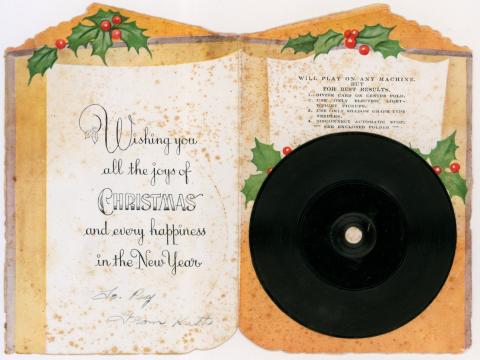 Wishing you
all the joys of
CHRISTMAS
and every happiness
in the New Year
To. Peg
From
WILL PLAY ON ANY MACHINE.
BUT
FOR BEST RESULTS.
1. DIVIDE CARD ON CENTRE FOLD.
2. USE ONLY ELECTRIC LIGHT-
WEIGHT PICKUPS.
3. USE ONLY SHADOW GRAPH TYPE
NEEDLES.
4. DISCONNECT AUTOMATIC STOP.
SEE ENCLOSED FOLDER